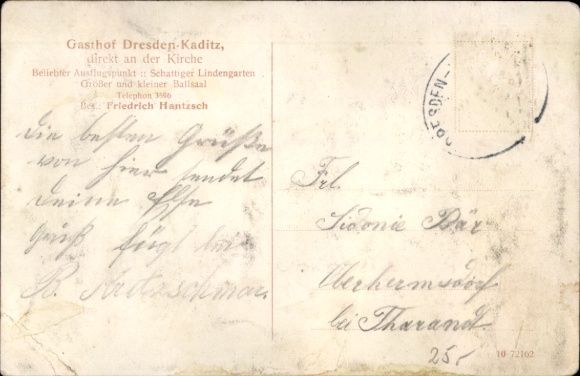 Gasthof Dresden-Kaditz,
direkt an der Kirche
Beliebter Ausflugspunkt :: Schattiger Lindengarten
Großer und kleiner Ballsaal
Telephon 3896
Bes.: Friedrich Hantzsch
DRESDEN
Die besten Grüße
von hier sendet
deine Else
Gruß fügt bei
R. Kretzschmar
Frl.
Sidonie Bär
bei Tharandt
25,-
10 72102